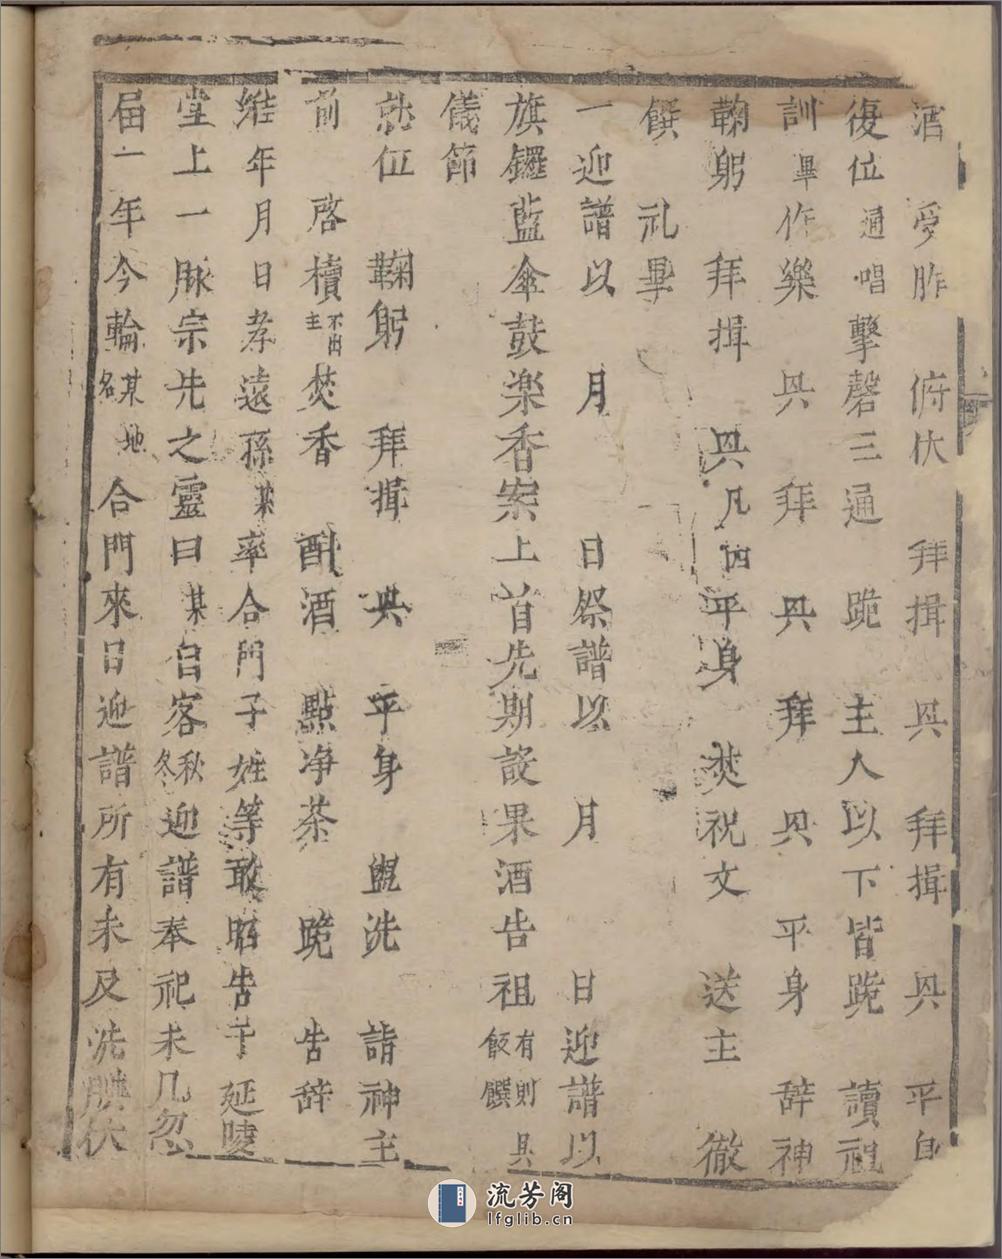 酒 受胙 俯伏 拜揖 㒷 拜揖 㒷 平身
復位通唱擊磬三通 跪 主人以下皆跪 讀祖
訓畢作樂 㒷 拜 㒷 拜 㒷 平身 辞神
鞠躬 拜揖 㒷凡四平身 焚祝文 送主 徹
饌 礼畢
一迎譜以 月 日祭譜以 月 日迎譜以
旗鑼藍傘鼓楽香案上首先期設果酒告祖有則具飯饌
儀節
就位 鞠躬 拜揖 㒷 平身 盥洗 詣神主
前 啓櫝不出主焚香 酙酒 點净茶 跪 告辞
維年月日孝遠孫某率合門子姓等敢昭告于 延陵
堂上一脉宗先之靈曰某白客秋冬迎譜奉祀未几忽
届一年今輪某名地合門來日迎譜所有未及洗腆伏
流芳阁
lfglib.cn